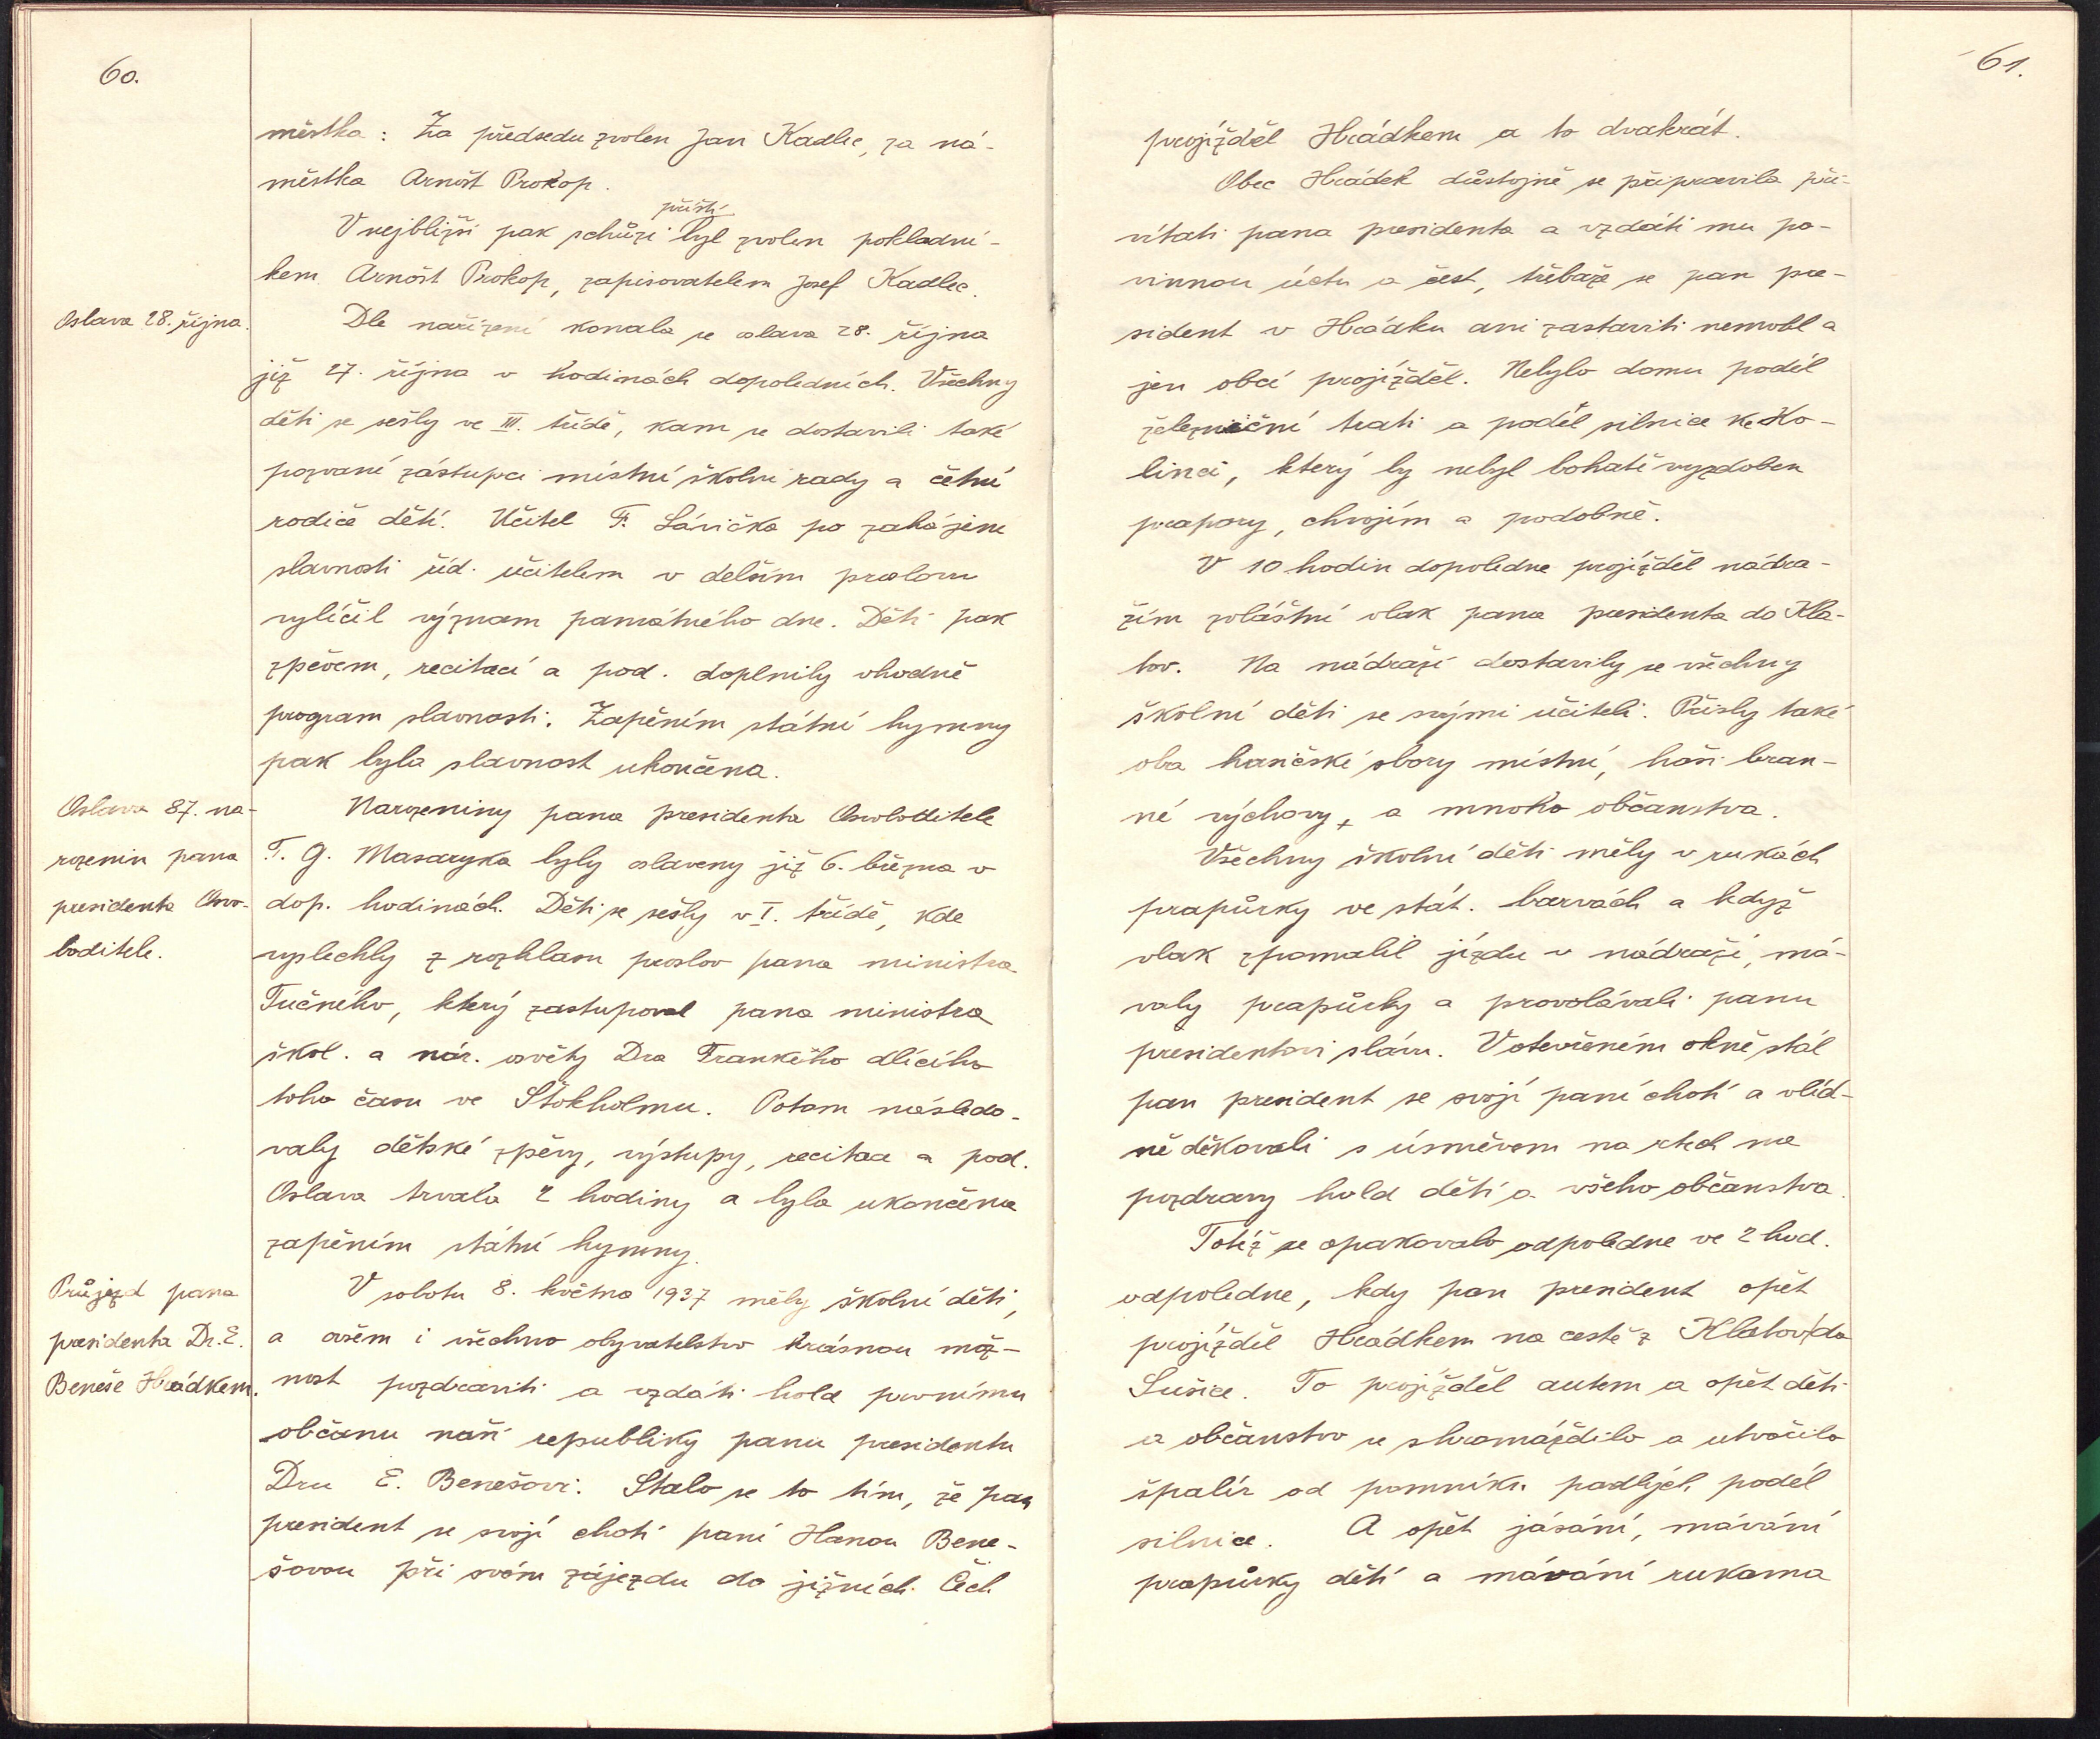 60.
městka: Za předsedu zvolen Jan Kadlec, za ná-
městka Arnošt Prokop.
příští
V nejbližší pak schůzi byl zvolen pokladní-
kem Arnošt Prokop, zapisovatelem Josef Kadlec.
Oslava 28. října.
Dle nařízení konala se oslava 28. října
již 27. října v hodinách dopoledních. Všechny
děti se sešly ve III. třídě, kam se dostavili také
pozvaní zástupci místní školní rady a četní
rodiče dětí. Učitel F. Lávička po zahájení
slavnosti říd. učitelem v delším proslovu
vylíčil význam památného dne. Děti pak
zpěvem, recitací a pod. doplnily vhodně
program slavnosti. Zapěním státní hymny
pak byla slavnost ukončena.
Oslava 87. na-
rozenin pana
presidenta Osvo-
boditele.
Narozeniny pana presidenta Osvoboditele
T. G. Masaryka byly oslaveny již 6. března v
dop. hodinách. Děti se sešly v I. třídě, kde
vyslechly z rozhlasu proslov pana ministra
Tučného, který zastupoval pana ministra
škol. a nár. osvěty Dra Frankeho dlícího
toho času ve Štokholmu. Potom následo-
valy dětské zpěvy, výstupy, recitace a pod.
Oslava trvala 2 hodiny a byla ukončena
zapěním státní hymny.
Průjezd pana
presidenta Dr. E.
Beneše Hrádkem.
V sobotu 8. května 1937 měly školní děti,
a ovšem i všechno obyvatelstvo krásnou mož-
nost pozdraviti a vzdáti hold prvnímu
občanu naší republiky panu presidentu
Dru E. Benešovi. Stalo se to tím, že pan
president se svojí chotí paní Hanou Bene-
šovou při svém zájezdu do jižních Čech
61.
projížděl Hrádkem a to dvakrát.
Obec Hrádek důstojně se připravila při-
vítati pana presidenta a vzdáti mu po-
vinnou úctu a čest, třebaže se pan pre-
sident v Hrádku ani zastaviti nemohl a
jen obcí projížděl. Nebylo domu podél
železniční trati a podél silnice ke Ko-
linci, který by nebyl bohatě vyzdoben
prapory, chvojím a podobně.
V 10 hodin dopoledne projížděl nádra-
žím zvláštní vlak pana presidenta do Kla-
tov. Na nádraží dostavily se všechny
školní děti se svými učiteli. Přišly také
oba hasičské sbory místní, hoši bran-
né výchovy, a mnoho občanstva.
Všechny školní děti měly v rukách
prapůrky ve stát. barvách a když
vlak zpomalil jízdu v nádraží, má-
valy prapůrky a provolávali panu
presidentovi slávu. V otevřeném okně stál
pan president se svojí paní chotí a vlíd-
ně děkovali s úsměvem na rtech na
pozdravy hold dětí a všeho občanstva.
Totéž se opakovalo odpoledne ve 2 hod.
odpoledne, kdy pan president opět
projížděl Hrádkem na cestě z Klatov do
Sušice. To projížděl autem a opět děti
a občanstvo se shromáždilo a utvořilo
špalír od pomníku padlých podél
silnice. A opět jásání, mávání
prapůrky dětí a mávání rukama